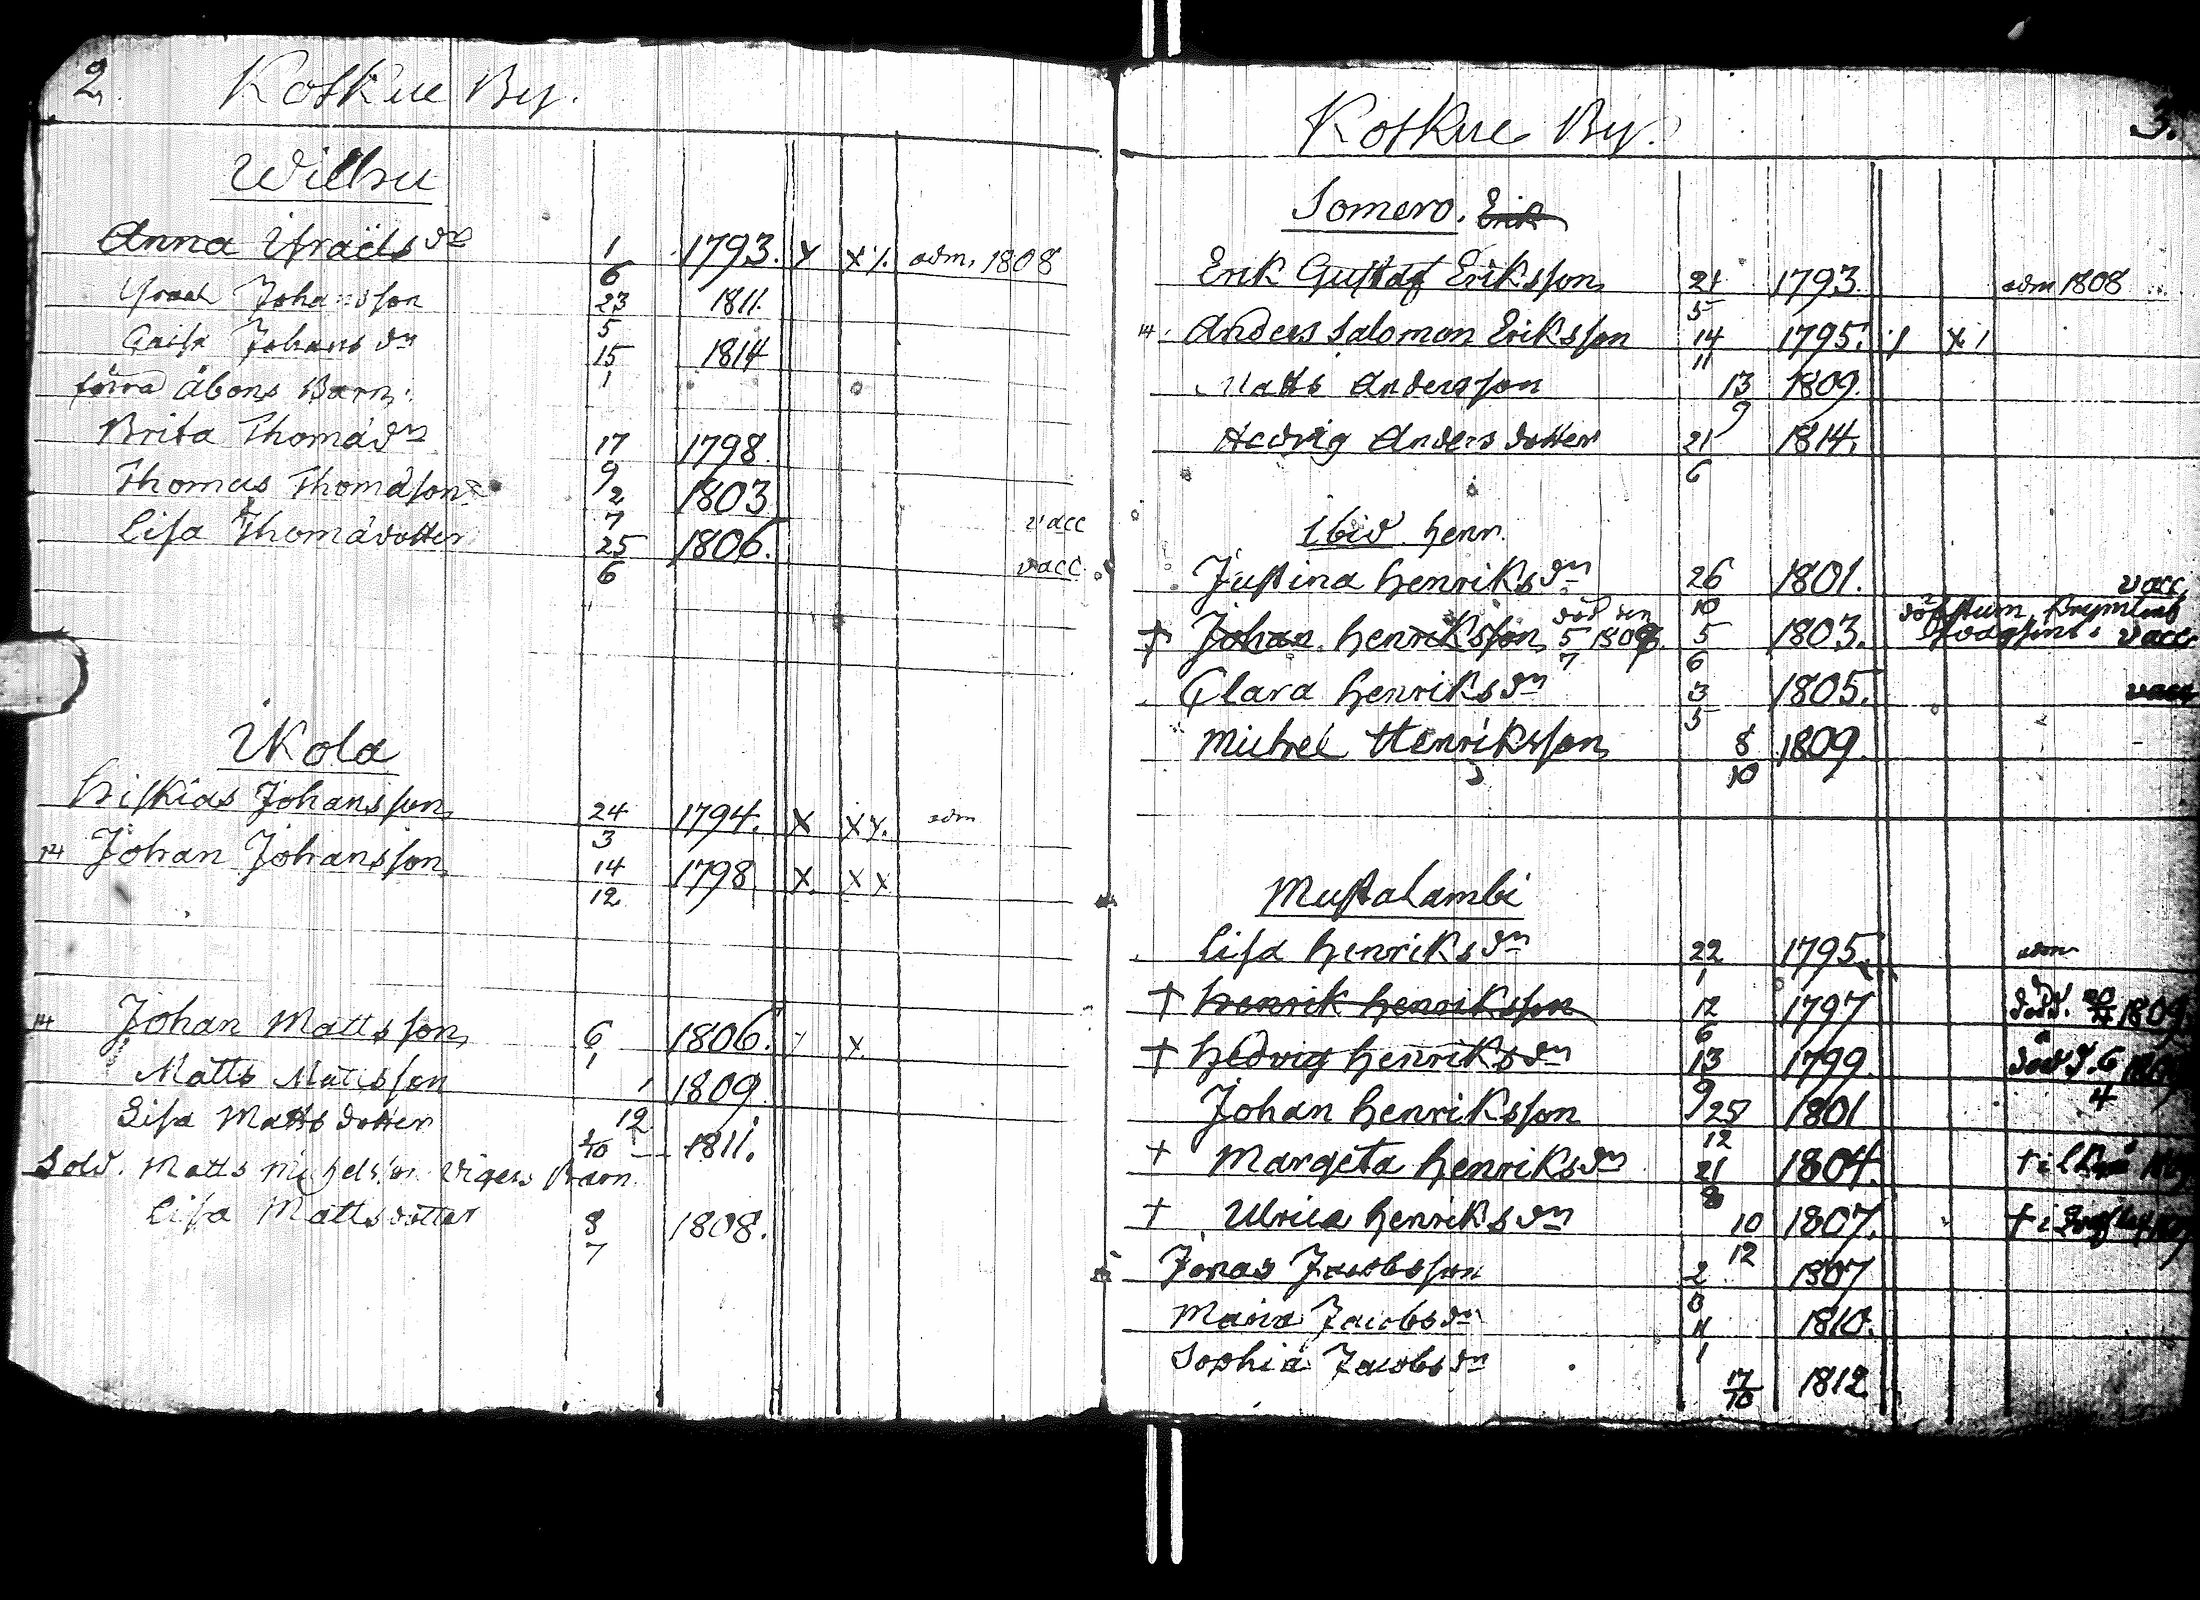 2. Koskue By.
Wilhu
Anna Israëls dr 1/6 1793. x x/. adm. 1808
Israel Johansson 23/5 1811.
Caisa Johans dr 15/1 1814
förra Åbons Barn:
Brita Thomä dr 17/9 1798.
Thomas Thomäson 2/7 1803 vacc
Lisa Thomädotter 25/6 1806. vacc.
Ikola
Hiskias Johansson 24/3 1794. x xx. adm
Johan Johansson 14/12 1798 x. xx
Johan Mattsson 6/1 1806. x
Matts Mattsson 1/12 1809
Lisa Matts dotter /10 1811.
Sold. Matts Michelsson Vigers Barn
Lisa Mattsdotter 8/7 1808.
Koskue By. 3.
Somero. Erik
Erik Gustaf Eriksson 21/5 1793 adm 1808
Anders Salomon Eriksson 14/11 1795. / x /
Matts Andersson 13/9 1809.
Hedvig Anders dotter 21/6 1814.
Ibid. Henr.
Justina Henriks dr 26/10 1801. vacc
† Johan Henriksson död den 5/7 180 5/6 1803. döfstum vacc
Clara Henriks dr 3/5 1805. vacc
Michel Henriksson 8/10 1809.
Mustalambi
Lisa Henriks dr 22/1 1795. adm
† Henrik Henriksson 12/6 1797 död. 1809.
† Hedvig Henriks dr 13/9 1799. död d. 6/4
Johan Henriksson 25/12 1801
† Margeta Henriks dr 21/8 1804. † i
† Ulrica Henriks dr 10/12 1807. † i
Jonas Jacobsson 2/3 1807
Maria Jacobs dr 11/1 1810.
Sophia Jacobs dr 17/10 1812